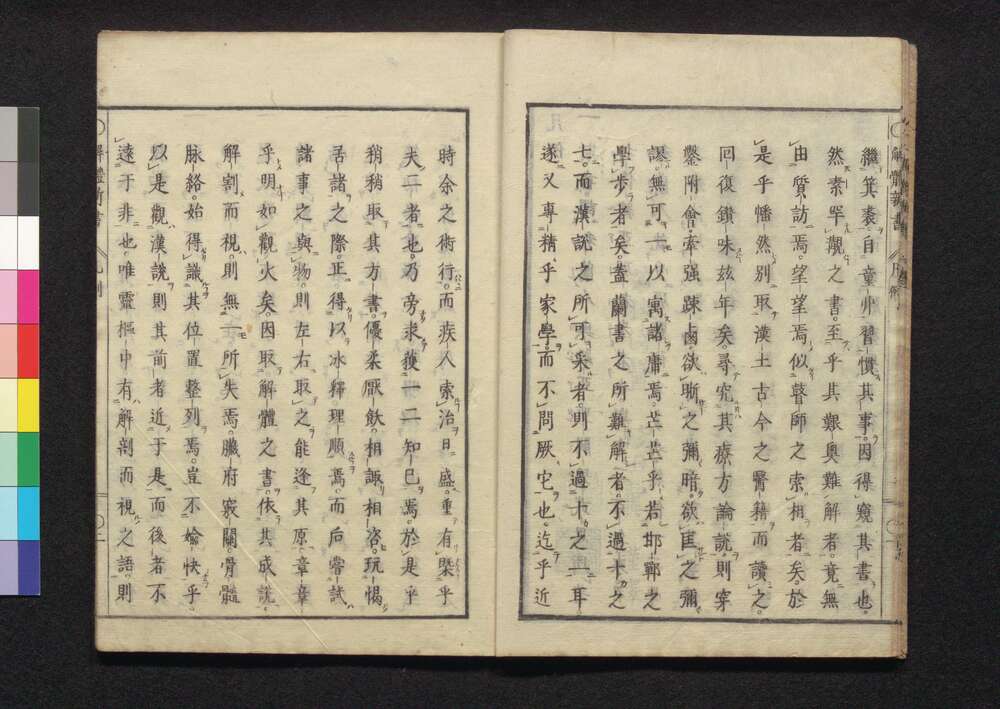 繼箕裘自童丱習慣其事因得窺其書也
然素罕覯之書至乎其艱奧難解者竟無
由質訪焉望望焉似瞽師之索相者矣於
是乎幡然別取漢土古今之醫籍而讀之
回復鑽味玆年矣尋究其療方論說則穿
鑿附會牽强踈鹵欲晣之彌暗欲匡之彌
謬無可一以寓諸庸焉芒芒乎若邯鄲之
學步者矣蓋蘭書之所難解者不過十之
七而漢說之所可采者則不過十之一耳
遂又專精乎家學而不問厥它也迄乎近
時余之術行而疾人索治日盛重有槩乎
夫二者也乃旁求獲一二知己焉於是乎
稍稍取其方書優柔厭飫相諏相咨玩愒
居諸之際正得以冰釋理順焉而后嘗試
諸事之與物則左右取之能逢其原章章
乎明如觀火矣因取解體之書依其成說
解割而視則無一所失焉臟府竅關骨髓
脉絡始得識其位置整列焉豈不愉快乎
以是觀漢說則其前者近于是而後者不
遠于非也唯靈樞中有解剖而視之語則
解體新書
解體新書 凡例